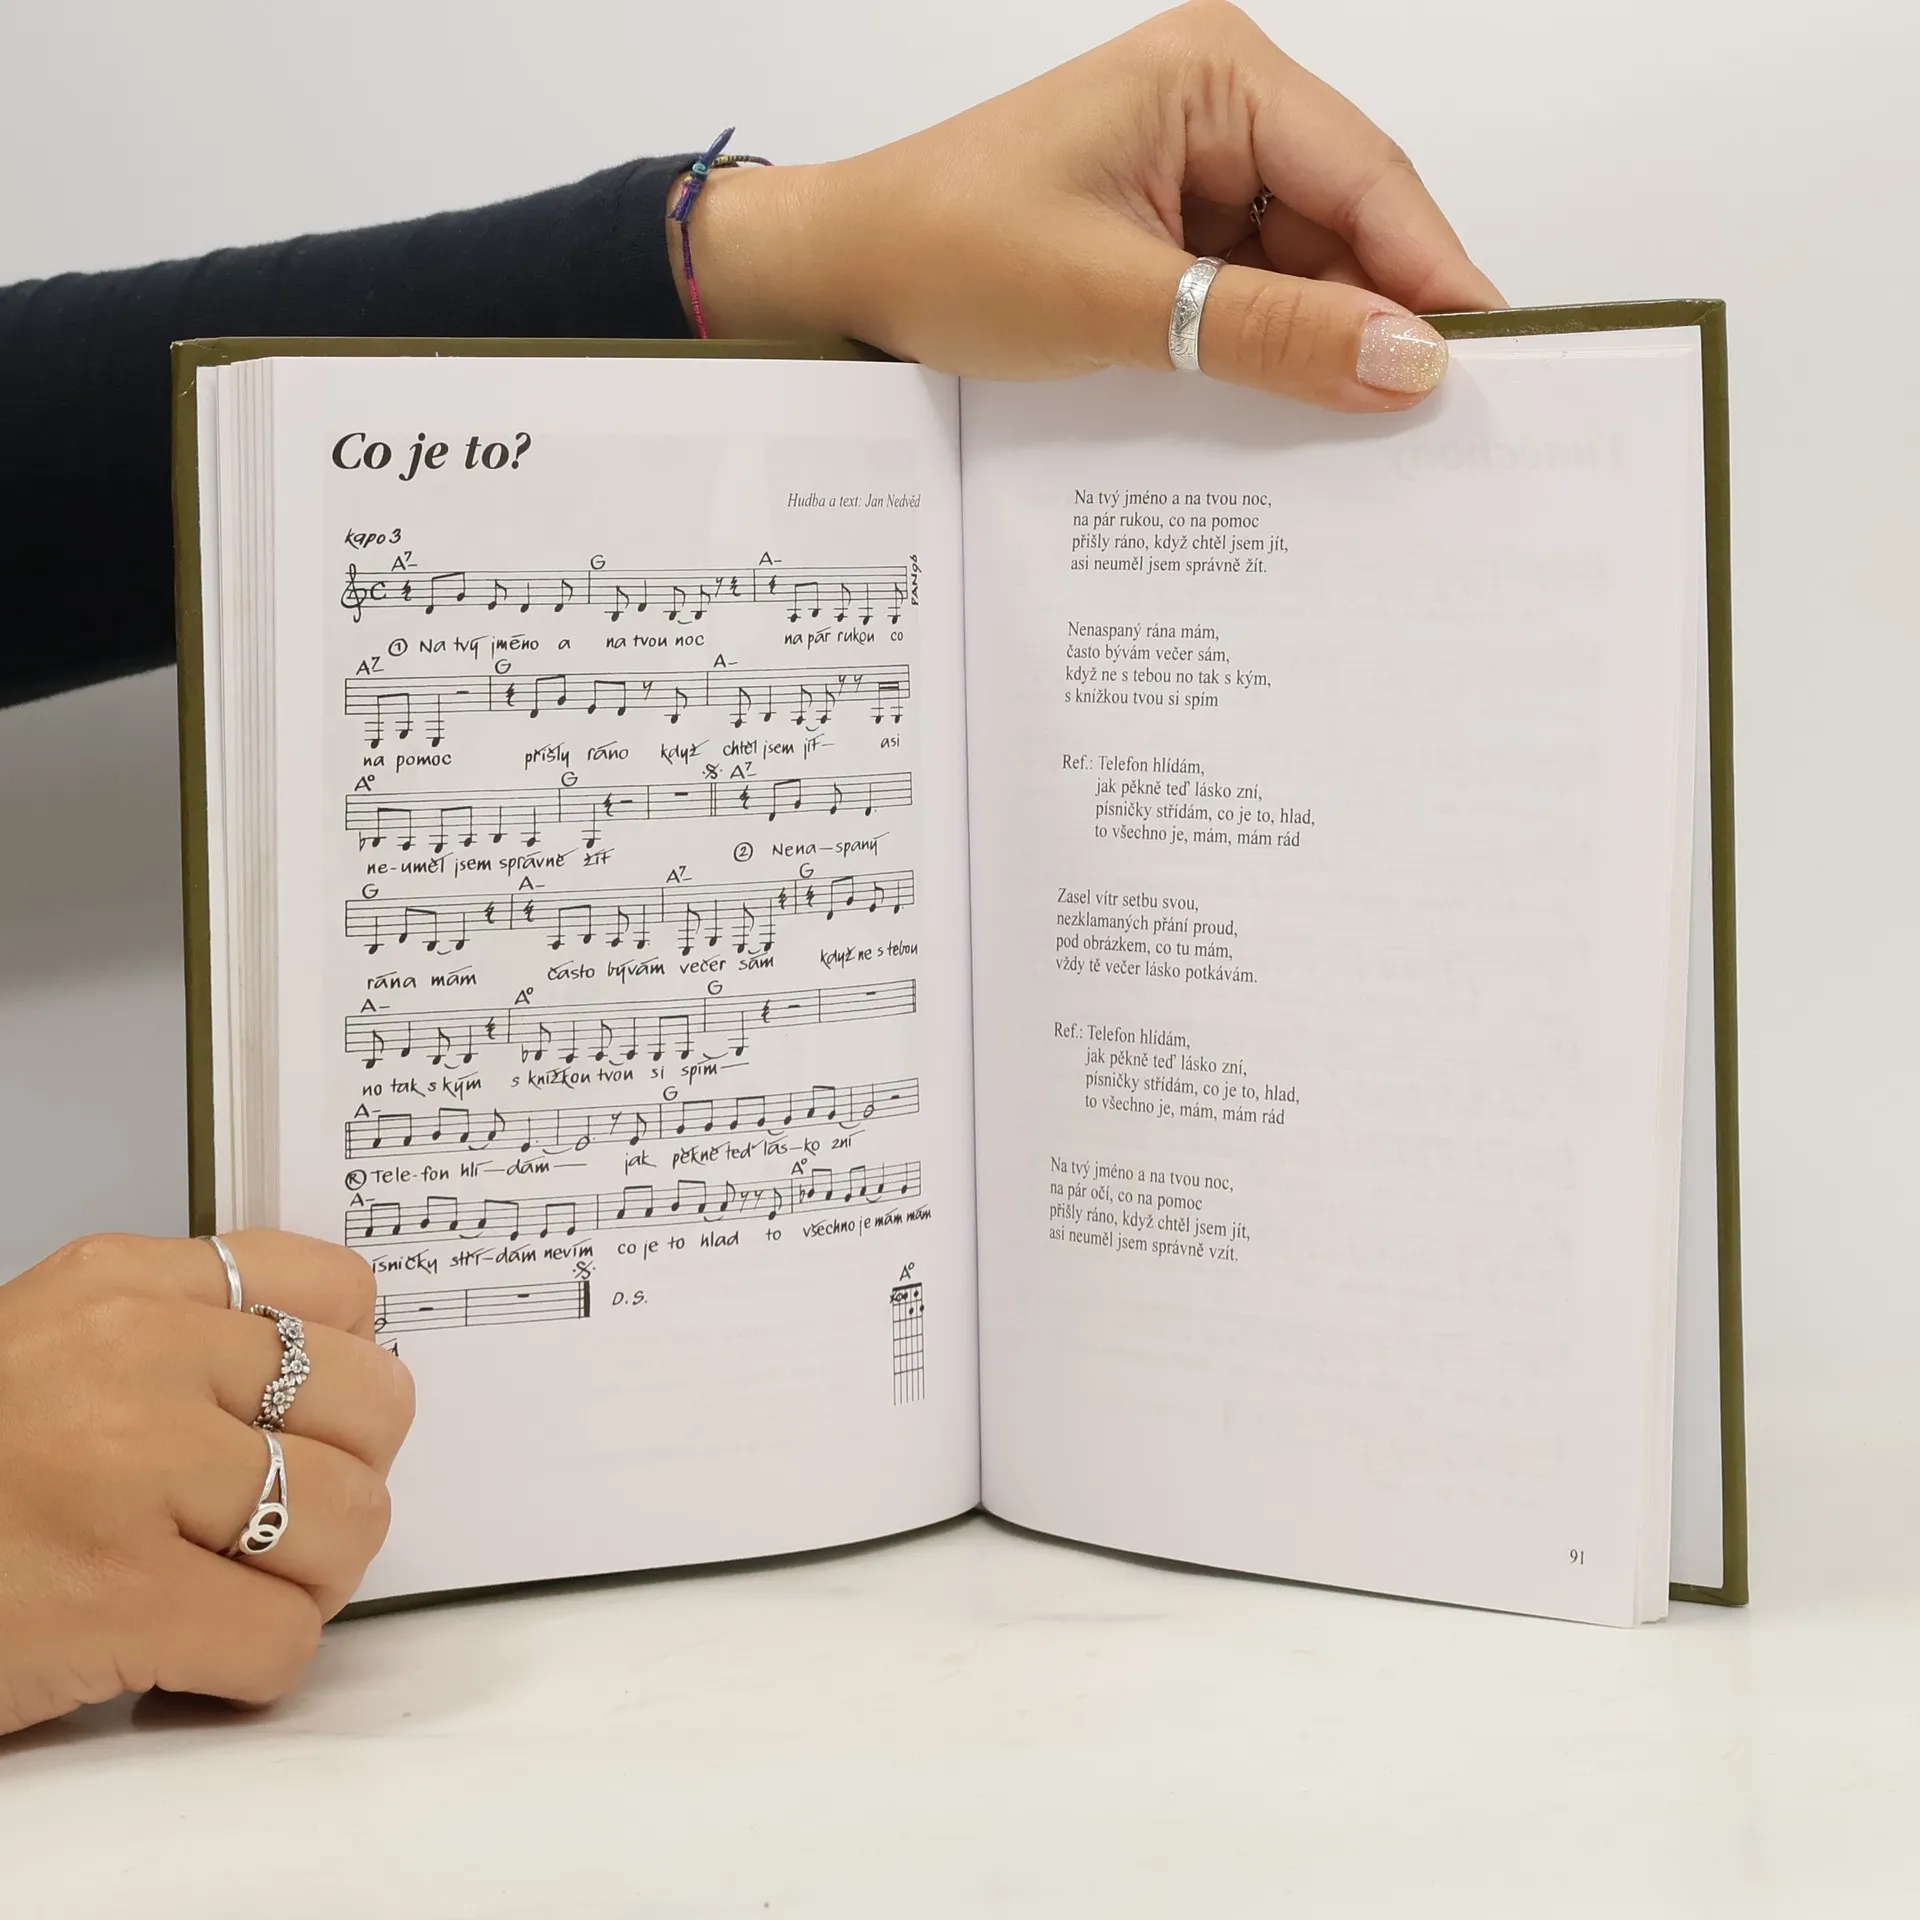 Co je to?
Hudba a text: Jan Nedvěd
kapo 3
A7- G A-
PAN96
① Na tvý jméno a na tvou noc na pár rukou co
A7- G A-
na pomoc přišly ráno když chtěl jsem jít— asi
A° G A7-
ne-uměl jsem správně žít ② Nena—spaný
G A- A7- G
rána mám často bývám večer sám když ne s tebou
A- A° G
no tak s kým s knížkou tvou si spím—
A- G
Ⓡ Tele-fon hlí—dám— jak pěkně teď lás—ko zní
A- A°
ísničky stří—dám nevím co je to hlad to všechno je mám mám
D.S.
A°
Na tvý jméno a na tvou noc,
na pár rukou, co na pomoc
přišly ráno, když chtěl jsem jít,
asi neuměl jsem správně žít.
Nenaspaný rána mám,
často bývám večer sám,
když ne s tebou no tak s kým,
s knížkou tvou si spím
Ref.: Telefon hlídám,
jak pěkně teď lásko zní,
písničky střídám, co je to, hlad,
to všechno je, mám, mám rád
Zasel vítr setbu svou,
nezklamaných přání proud,
pod obrázkem, co tu mám,
vždy tě večer lásko potkávám.
Ref.: Telefon hlídám,
jak pěkně teď lásko zní,
písničky střídám, co je to, hlad,
to všechno je, mám, mám rád
Na tvý jméno a na tvou noc,
na pár očí, co na pomoc
přišly ráno, když chtěl jsem jít,
asi neuměl jsem správně vzít.
91